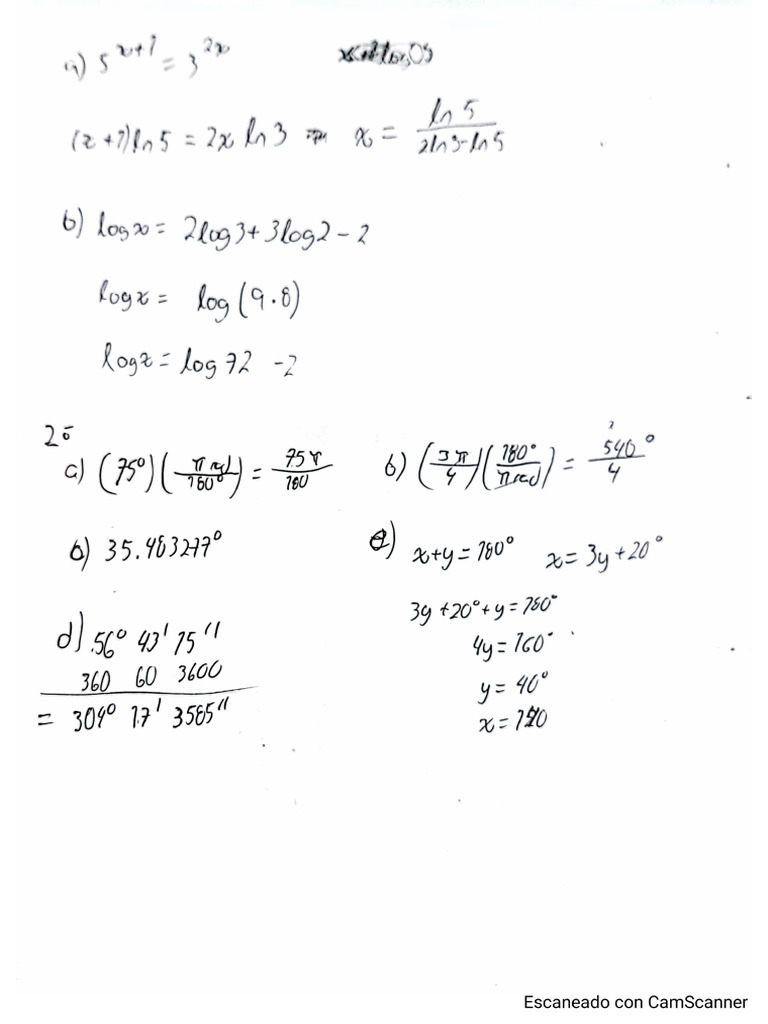 a) 5^{x+1} = 3^{2x}
(x+1) ln 5 = 2x ln 3 x = \frac{ln 5}{2 ln 3 - ln 5}
b) log x = 2log 3 + 3log 2 - 2
log x = log (9·8)
log x = log 72 -2
2º
a) (75°) (\frac{π rad}{180°}) = \frac{75π}{180}
b) (\frac{3π}{4}) (\frac{180°}{π rad}) = \frac{540°}{4}
35.483277°
x+y = 180° x = 3y+20°
3y+20°+y = 180°
4y = 160°
y = 40°
x =
d) 56° 43' 15''
360 60 3600
= 304° 17' 3585''
Escaneado con CamScanner